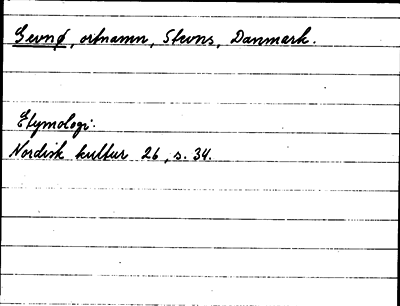 Gevnø, ortnamn, Stevns, Danmark.
Etymologi:
Nordisk kultur 26, s. 34.